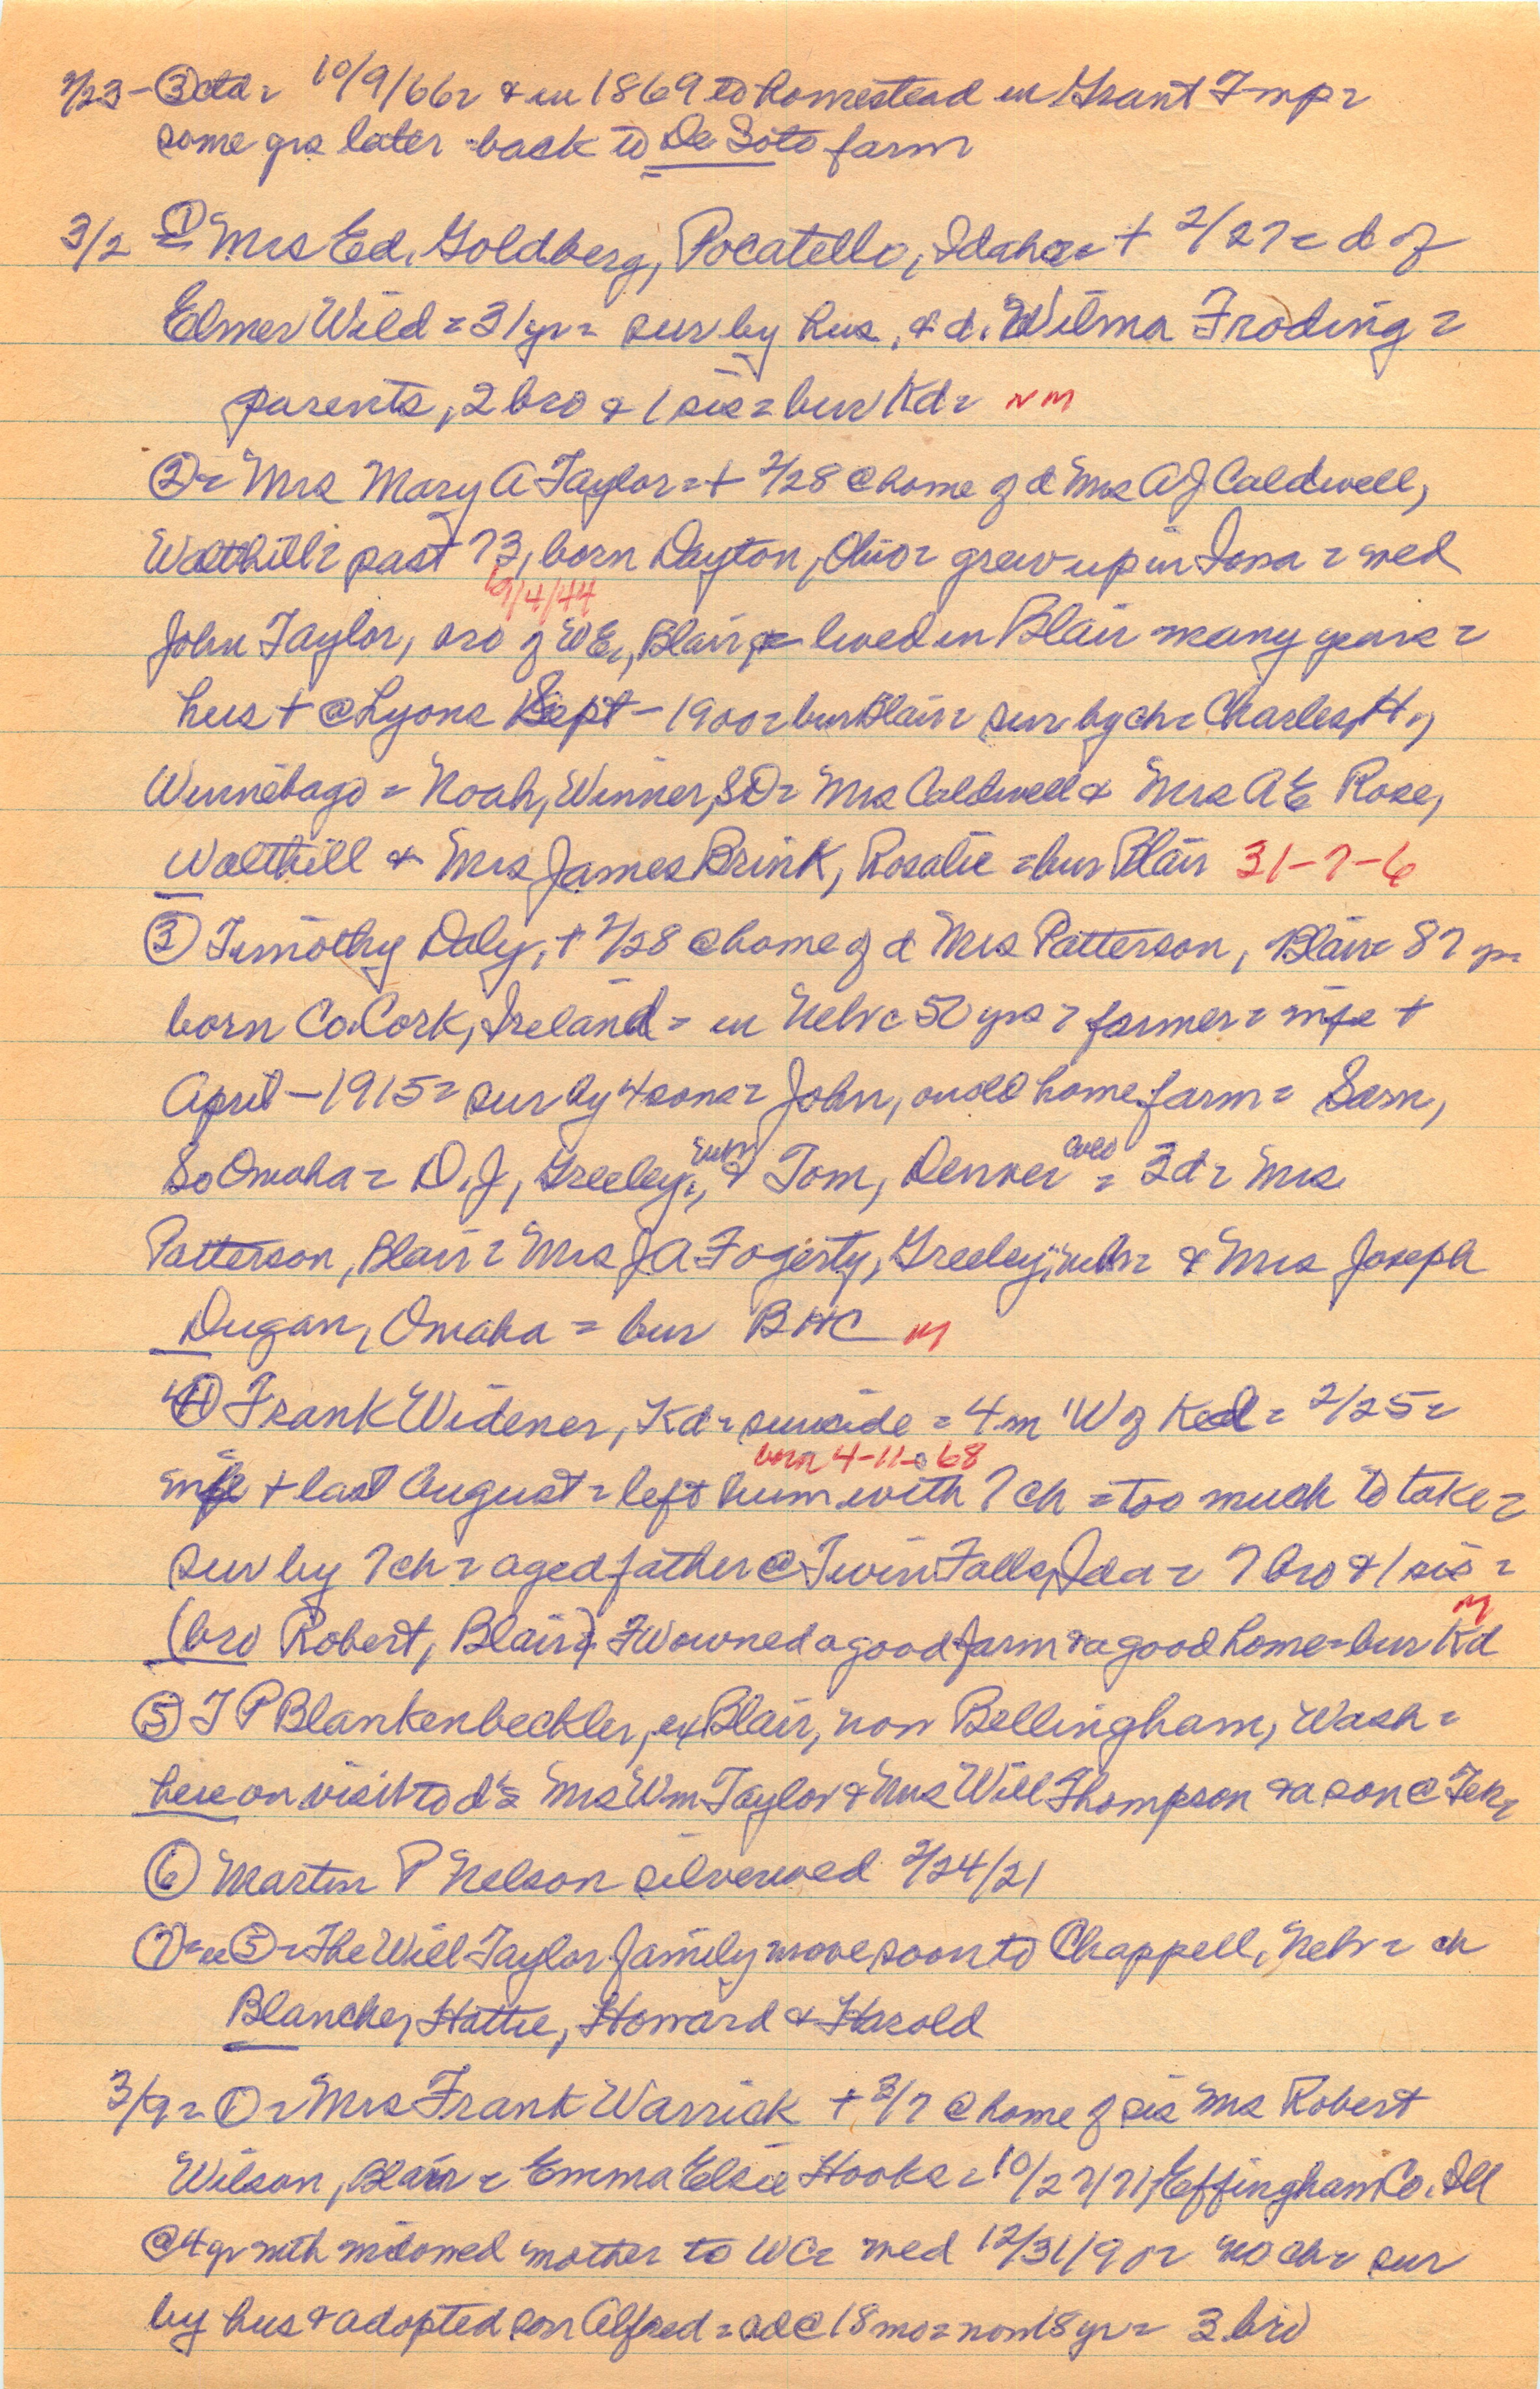 2/23 - ③ctd = 10/9/66 = & in 1869 to homestead in Grant Twp =
some yrs later back to De Soto farm
3/2 ① = Mrs Ed. Goldberg, Pocatello, Idaho = + 2/27 = d of
Elmer Wild = 31 yr = sur by hus, & d. Wilma Froding =
parents, 2 bro & 1 sis = bur Kd = NM
② = Mrs Mary A Taylor = + 2/28 @ home of d Mrs A J Caldwell,
Walthill = past 73, born Dayton, Ohio = grew up in Iowa = wed
9/4/44
John Taylor, bro of WE, Blair, = lived in Blair many years =
hus + @ Lyons Sept - 1900 = bur Blair = sur by ch = Charles H,
Winnebago = Noah, Winner, SD = Mrs Caldwell & Mrs A E Rose,
Walthill & Mrs James Brink, Rosalie = bur Blair 31-7-6
③ Timothy Daly, + 2/28 @ home of d Mrs Patterson, Blair = 87 yr =
born Co. Cork, Ireland = in Neb c 50 yrs = farmer = wife +
April - 1915 = sur by 4 sons = John, on old home farm = Sam,
So Omaha = D. J, Greeley, Neb, & Tom, Denver Colo = 3 d = Mrs
Patterson, Blair = Mrs J A Fogerty, Greeley, Neb = & Mrs Joseph
Dugan, Omaha = bur BHC M
④ Frank Widener, Kd = suicide = 4 m W of Ked = 2/25 =
born 4-11-68
wife + last August = left him with 7 ch = too much to take =
sur by 7 ch = aged father @ Twin Falls, Ida = 7 bro & 1 sis =
(bro Robert, Blair) = FW owned a good farm & a good home = bur Kd M
⑤ J P Blankenbeckler, ex Blair, now Bellingham, Wash =
here on visit to d's = Mrs Wm Taylor & Mrs Will Thompson & a son @ Tek =
⑥ Martin P Nelson silverwed 2/24/21
⑦ = re ⑤ = The Will Taylor family move soon to Chappell, Neb = ch
Blanche, Hattie, Howard & Harold
3/9 = ① = Mrs Frank Warrick + 3/7 @ home of sis Mrs Robert
Wilson, Blair = Emma Elsie Hooks = 10/27/71, Effingham Co. Ill
@ 4 yr with widowed mother to WC = wed 12/31/90 = no ch = sur
by hus & adopted son Alfred = ad @ 18 mo = now 18 yr = 3 bro